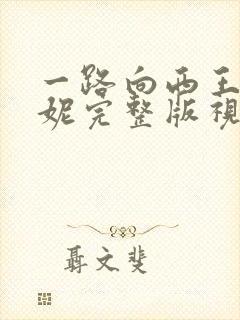 一路向西王
妮完整版視
聶文斐